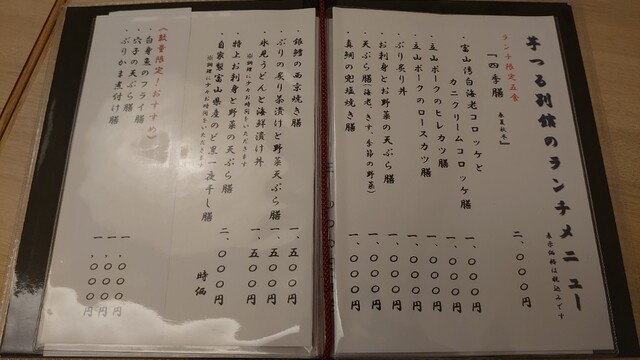 芋つる別館のランチメニュー
表示価格は税込みです
ランチ限定五食
『四季膳 春夏秋冬』 二、〇〇〇円
・富山湾白海老コロッケと
カニクリームコロッケ膳 一、〇〇〇円
・立山ポークのヒレカツ膳 一、〇〇〇円
・立山ポークのロースカツ膳 一、〇〇〇円
・ぶり炙り丼 一、〇〇〇円
・お刺身とお野菜の天ぷら膳 一、〇〇〇円
・天ぷら膳(海老、きす、季節の野菜) 一、〇〇〇円
・真鯛の兜塩焼き膳 一、〇〇〇円
・銀鱈の西京焼き膳 一、五〇〇円
・ぶりの炙り茶漬けと野菜天ぷら膳 一、五〇〇円
・氷見うどんと海鮮漬け丼 一、五〇〇円
※調理に十五分お時間をいただきます
・特上お刺身と野菜の天ぷら膳 二、〇〇〇円
・自家製富山県産のど黒一夜干し膳 時価
※調理に十五分お時間をいただきます
《数量限定!おすすめ》
・白身魚のフライ膳 一、〇〇〇円
・穴子の天ぷら膳 一、〇〇〇円
・ぶりかま煮付け膳 一、〇〇〇円